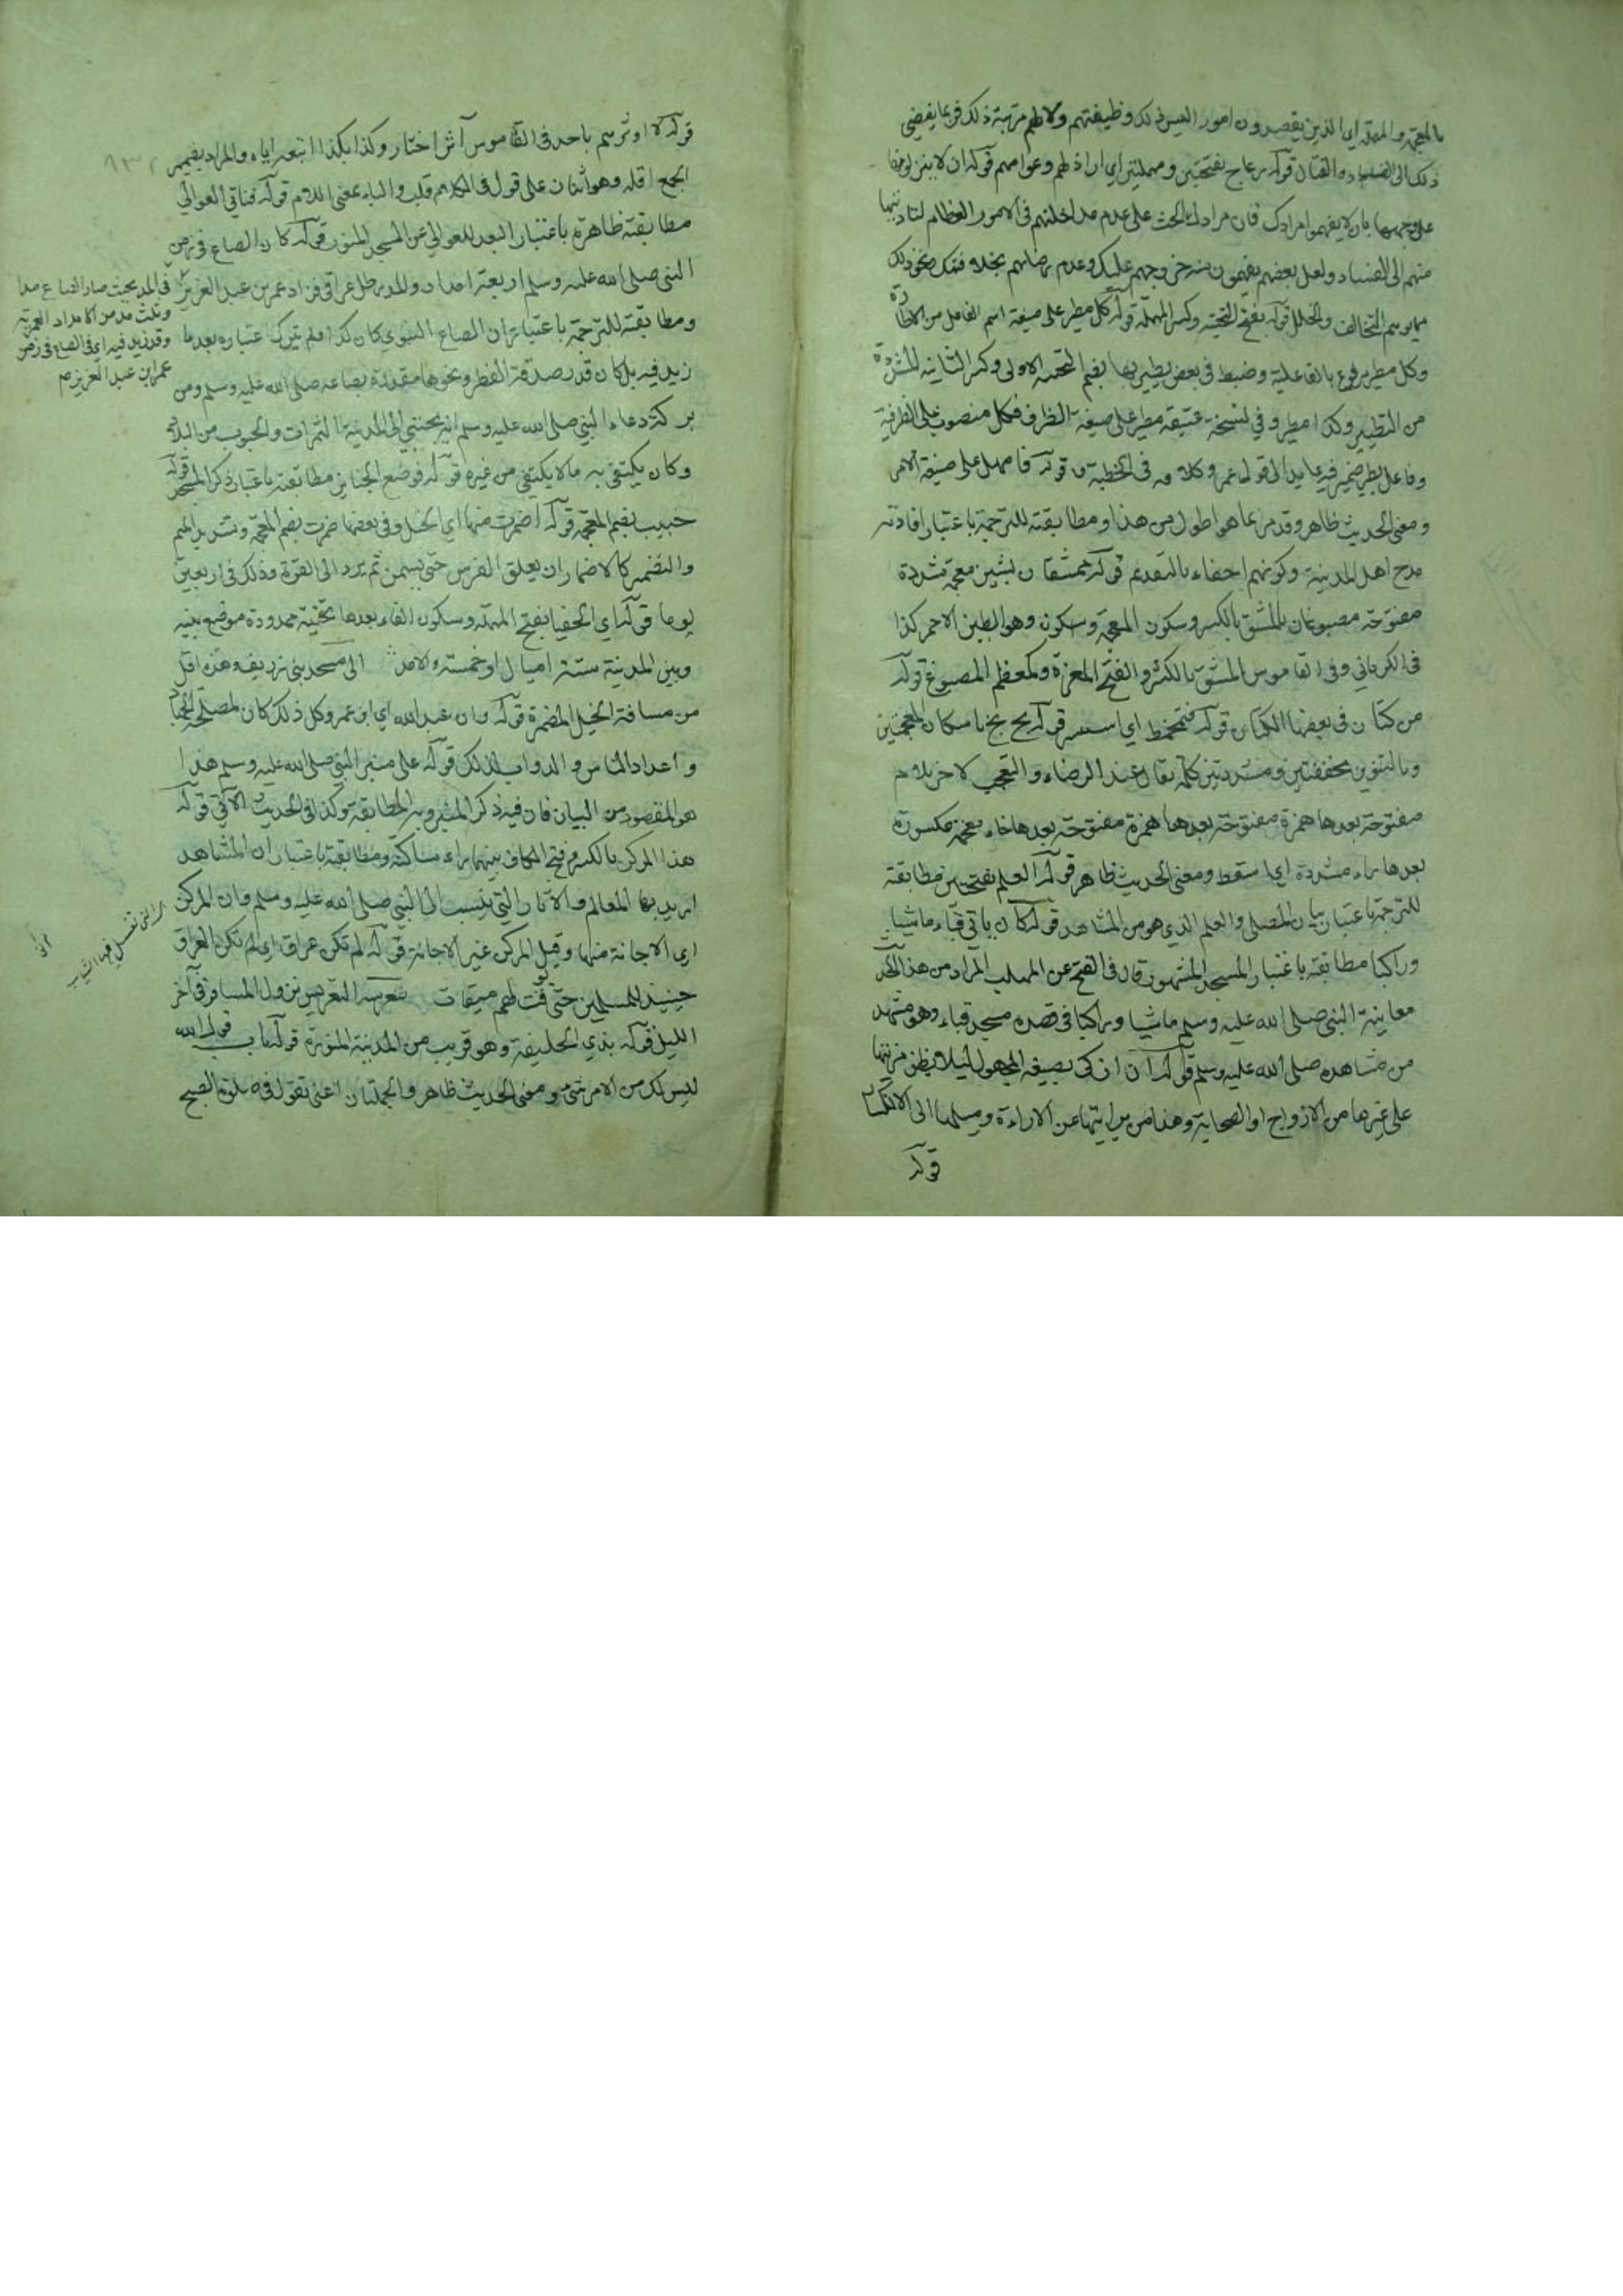 بالمعجمة والمهملة اي الذين يقصدون امور الناس ذلك وظيفتهم ولا لهم مرتبة ذلك فربما يفضي
ذلك الى الفساد والقتال قوله رعاع بفتحتين ومهملتين اي اراذلهم وعوامهم قوله ان لا ينزلوها
على وجهها بان لا يفهموا مرادك فان مرادك الحث على عدم مداخلتهم في الامور العظام لتأديتها
منهم الى الفساد ولعل بعضهم يفهمون منه وعدم رضاهم بخلافتك ونحو ذلك
مما يوهم التخالف والخلل قوله بفتح التحتية وكسر المهملة قوله كل مطير على صيغة اسم الفاعل من الاطارة
وكل مطير مرفوع بالفاعلية وضبط في بعض يطير بها بضم التحتية الاولى وكسر الثانية المشددة
من التطيير وكذا مطير وفي نسخة عتيقة مطير على صيغة الظرف فكل منصوب على الظرفية
وفاعل يطير ضمير فيه عايد الى قول عمر وكلامه في الخطبة قوله فامهل على صيغة الامر
ومعنى الحديث ظاهر وقد مر بما هو اطول من هذا ومطابقته للترجمة باعتبار افادته
مدح اهل المدينة وكونهم احقاء بالتقديم قوله ممشقان بشين معجمة مشددة
مفتوحة مصبوغان بالمشق بالكسر وسكون المعجمة وسكونه وهو الطين الاحمر كذا
في الكرماني وفي القاموس المشق بالكسر والفتح المغرة وكمعظم المصبوغ قوله
من كتان في بعضها الكتان قوله فتمخط اي استنثر قوله بخ بخ باسكان المعجمتين
وبالتنوين مخففتين ومشددتين كلمة يقال عند الرضاء والتعجب لاخر بلام
مفتوحة بعدها همزة مفتوحة بعدها خاء معجمة مكسورة
بعدها راء مشددة اي اسقط ومعنى الحديث ظاهر قوله العلم بفتحتين مطابقته
للترجمة باعتبار بيان المصلى والعلم الذي هو من المشاهد قوله كان ياتي قباء ماشيا
وراكبا مطابقته باعتبار المسجد المشهور قال في الفتح عن المهلب المراد من هذا الحديث
معاينة النبي صلى الله عليه وسلم ماشيا وراكبا في قصده مسجد قباء وهو مشهد
من مشاهده صلى الله عليه وسلم قوله ان ازكى بصيغة المجهول لئلا يظن مزيتها
على غيرها من الازواج او الصحابة وهذا من براءتها عن الاراءة وميلها الى الانكسار
قوله
قوله لا اوثرهم باحد في القاموس آثر اختار وكذا بكذا اتبعه اياه والمراد بضمير
الجمع اقله وهو اثنان على قول في الكلام قلب والباء بمعنى اللام قوله فناتي العوالي
مطابقته ظاهرة باعتبار البعد للعوالي عن المسجد المنور قوله كان الصاع في زمن
النبي صلى الله عليه وسلم اربعة امداد والمد رطل عراقي فزاد عمر بن عبد العزيز
في المد بحيث صار الصاع مدا
وثلث مد من الامداد العمرية
وقد زيد فيه اي في الصاع في زمن
عمر ابن عبد العزيز
ومطابقته للترجمة باعتبار ان الصاع النبوي كان كذا فلم يترك اعتباره بعد ما
زيد فيه بل كان قدر صدقة الفطر ونحوها مقدرة بصاعه صلى الله عليه وسلم ومن
بركة دعاء النبي صلى الله عليه وسلم الى المدينة الثمرات والحبوب من البلاد
وكان يكتفى به ما لا يكتفى من غيره قوله موضع الجنايز مطابقته باعتبار ذكر المسجد قوله
خبيب بضم المعجمة قوله اضمرت منها اي الخيل وفي بعضها ضمرت بضم المعجمة وتشديد الميم
والتضمير كالاضمار ان يعلق الفرس حتى يسمن ثم يرد الى القوة وذلك في اربعين
يوما قوله اي الحفيا بفتح المهملة وسكون الفاء بعدها تحتية ممدودة موضع بينه
وبين المدينة ستة اميال او خمسة والامد الى مسجد بني زريق وهذه اقل
من مسافة الخيل المضمرة قوله وان عبد الله اي ابن عمر وكل ذلك كان لمصلحة الجهاد
واعداد الناس والدواب لذلك قوله على منبر النبي صلى الله عليه وسلم هذا
هو المقصود من البيان فان فيه ذكر المنبر وبه المطابقة وكذا في الحديث الآتي قوله
هذا المركن بالكسر وفتح الكاف بينهما راء ساكنة ومطابقته باعتبار ان المشاهد
اريد بها المعالم والآثار التي ينسب الى النبي صلى الله عليه وسلم وان المركن
اي الاجانة منها وقيل المركن غير الاجانة قوله لم تكن عراق اي لم تكن العراق
التي تغسل فيها الثياب
حينئذ للمسلمين حتى يوقت لهم ميقات معرسه التعريس نزول المسافر في آخر
الليل قوله بذي الحليفة وهو قريب من المدينة المنورة قوله باب قول الله
ليس لك من الامر شيء ومعنى الحديث ظاهر والجملتان اعني تقول في صلوة الصبح